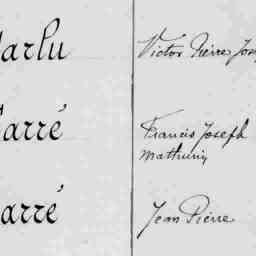 arlu Victor Pierre Jose
arré Francis Joseph
Mathurin
arré Jean Pierre